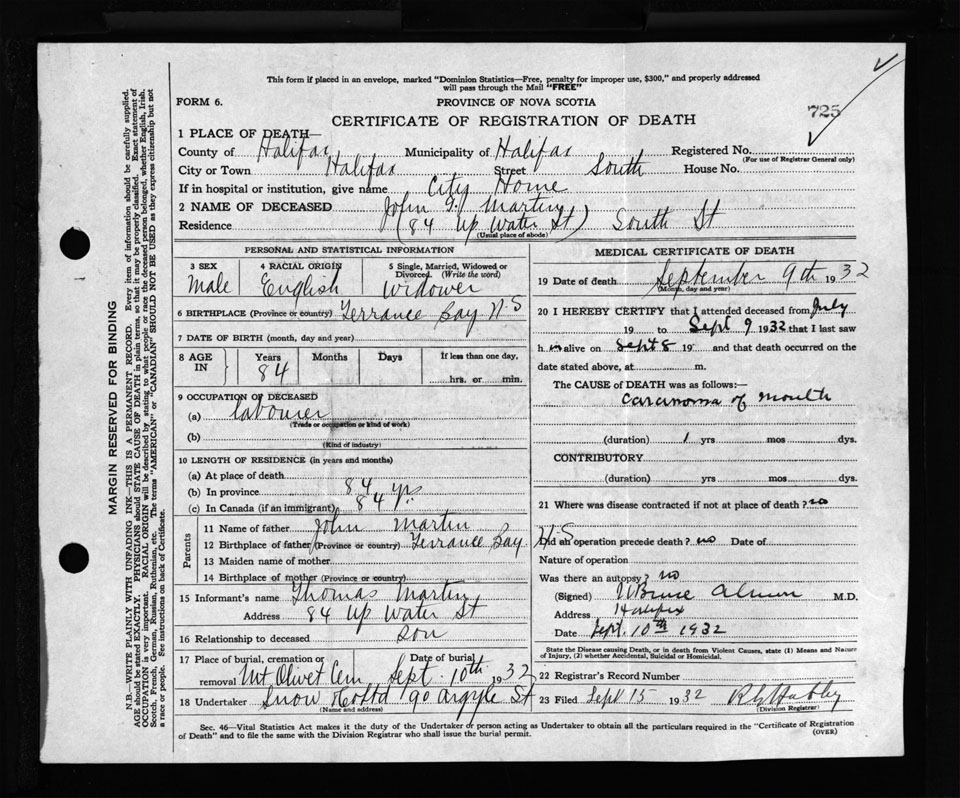 This form if placed in an envelope, marked "Dominion Statistics—Free, penalty for improper use, $300," and properly addressed
will pass through the Mail "FREE"
FORM 6.
PROVINCE OF NOVA SCOTIA
725
CERTIFICATE OF REGISTRATION OF DEATH
1 PLACE OF DEATH—
County of Halifax Municipality of Halifax Registered No.
(For use of Registrar General only)
City or Town Halifax Street South House No.
If in hospital or institution, give name City Home
2 NAME OF DECEASED John Martin
Residence (84 Up Water St) South St
(Usual place of abode)
PERSONAL AND STATISTICAL INFORMATION
3 SEX 4 RACIAL ORIGIN 5 Single, Married, Widowed or
Divorced. (Write the word)
Male English Widower
6 BIRTHPLACE (Province or country) Terrance Bay N-S
7 DATE OF BIRTH (month, day and year)
8 AGE IN Years Months Days If less than one day,
84
hrs. or min.
9 OCCUPATION OF DECEASED
(a) labourer
(Trade or occupation or kind of work)
(b)
(Kind of industry)
10 LENGTH OF RESIDENCE (in years and months)
(a) At place of death
(b) In province 84
(c) In Canada (if an immigrant) 84 yrs
Parents
11 Name of father John Martin
12 Birthplace of father (Province or country) Terrance Bay N-S
13 Maiden name of mother
14 Birthplace of mother (Province or country)
15 Informant's name Thomas Martin
Address 84 Up Water St
16 Relationship to deceased Son
17 Place of burial, cremation or removal Mt Olivet Cem Date of burial Sept. 10th 1932
18 Undertaker Snow & Co Ltd 90 Argyle St
(Name and address)
MEDICAL CERTIFICATE OF DEATH
19 Date of death September 9th 1932
(Month, day and year)
20 I HEREBY CERTIFY that I attended deceased from July
19 to Sept 9 1932 that I last saw
h im alive on Sept 8 19 and that death occurred on the
date stated above, at m.
The CAUSE of DEATH was as follows:—
Carcinoma of mouth
(duration) 1 yrs mos dys.
CONTRIBUTORY
(duration) yrs mos dys.
21 Where was disease contracted if not at place of death? no
Did an operation precede death? no Date of
Nature of operation
Was there an autopsy? no
(Signed) Bruce Almon M.D.
Address Halifax
Date Sept. 10th 1932
State the Disease causing Death, or in death from Violent Causes, state (1) Means and Nature
of Injury, (2) whether Accidental, Suicidal or Homicidal.
22 Registrar's Record Number
23 Filed Sept 15 1932
(Division Registrar)
Sec. 46—Vital Statistics Act makes it the duty of the Undertaker or person acting as Undertaker to obtain all the particulars required in the "Certificate of Registration
of Death" and to file the same with the Division Registrar who shall issue the burial permit.
(OVER)
MARGIN RESERVED FOR BINDING
N.B.—WRITE PLAINLY WITH UNFADING INK—THIS IS A PERMANENT RECORD. Every item of information should be carefully supplied.
AGE should be stated EXACTLY. PHYSICIANS should STATE CAUSE OF DEATH in plain terms, so that it may be properly classified. Exact statement of
OCCUPATION is very important. RACIAL ORIGIN will be described by stating to what people or race the deceased person belonged, whether English, Irish,
Scotch, French, German, Russian, Ruthenian, etc. The terms "AMERICAN" or "CANADIAN" SHOULD NOT BE USED as they express citizenship but not
a race or people. See instructions on back of Certificate.